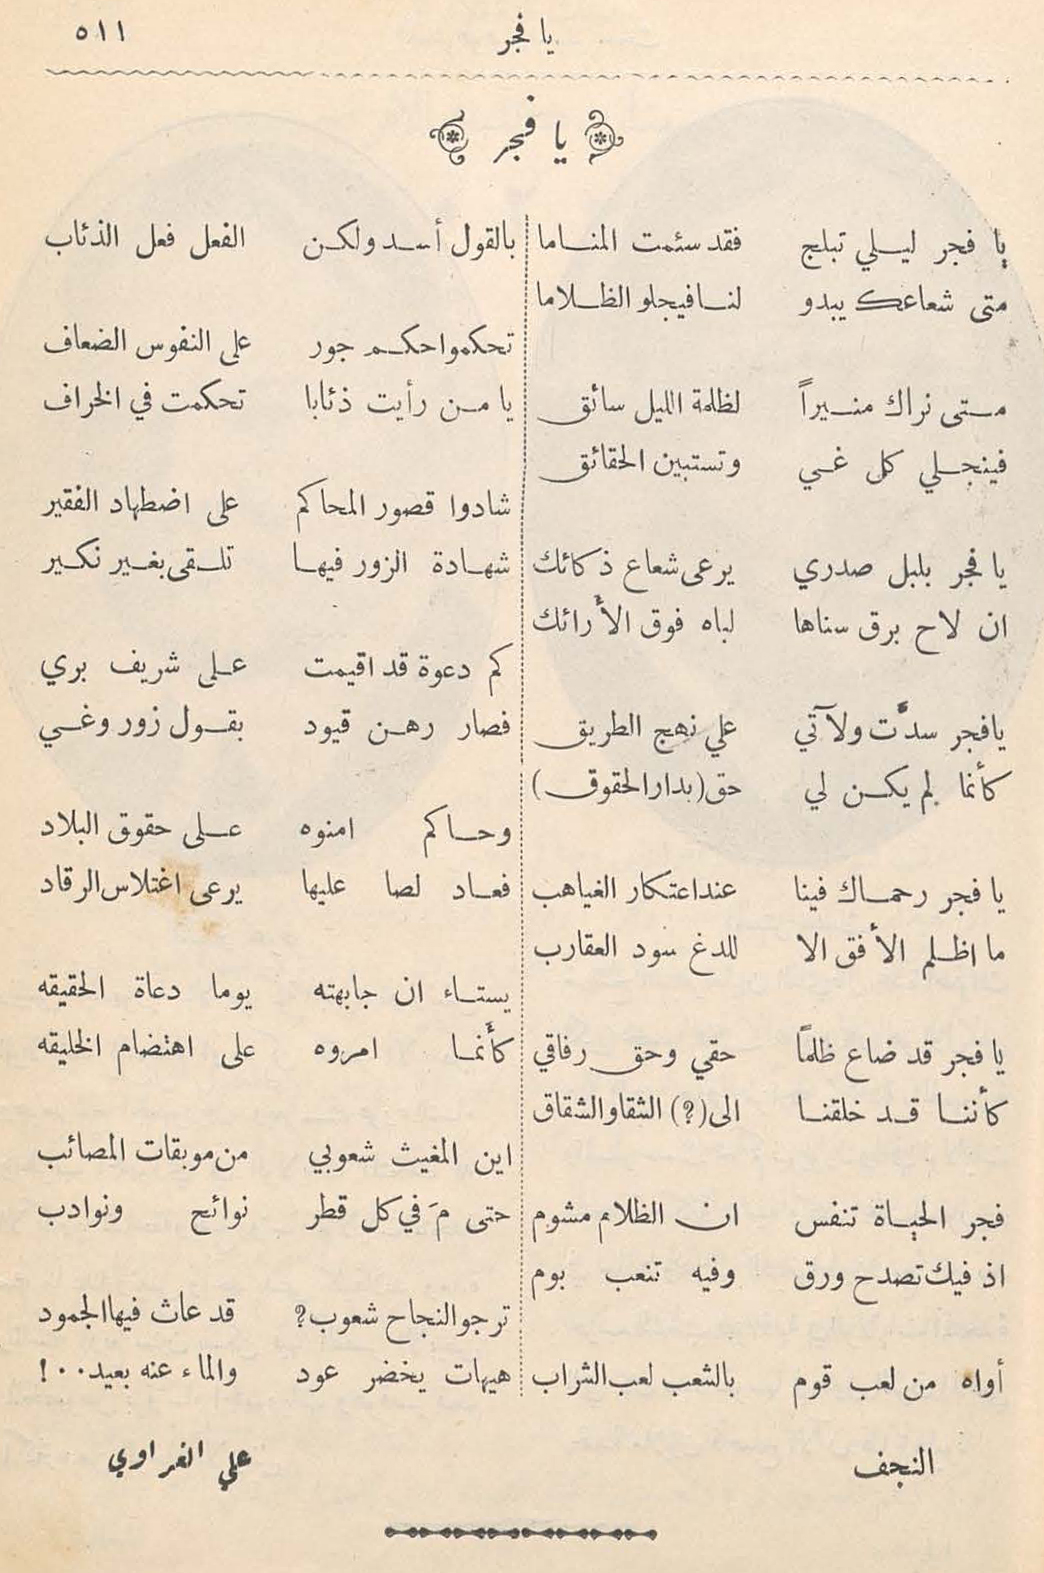 يا فجر ٥١١
يا فجر
يا فجر ليلي تبلج فقد سئمت المناما
متى شعاعك يبدو لنا فيجلو الظلاما
متى نراك منيراً لظلمة الليل سائق
فينجلي كل غي وتستبين الحقائق
يا فجر بلبل صدري يرعى شعاع ذكائك
ان لاح برق سناها لباه فوق الأرائك
يا فجر سدَّت ولاآتي علي نهج الطريق
كأنما لم يكن لي حق (بدار الحقوق)
يا فجر رحماك فينا عند اعتكار الغياهب
ما اظلم الأفق الا للدغ سود العقارب
يا فجر قد ضاع ظلماً حقي وحق رفاقي
كأننا قد خلقنا الى (؟) الشقا والشقاق
فجر الحياة تنفس ان الظلام مشوم
اذ فيك تصدح ورق وفيه تنعب بوم
أواه من لعب قوم بالشعب لعب الشراب
بالقول أسد ولكن الفعل فعل الذئاب
تحكموا حكم جور على النفوس الضعاف
يا من رأيت ذئابا تحكمت في الخراف
شادوا قصور المحاكم على اضطهاد الفقير
شهادة الزور فيها تلقى بغير نكير
كم دعوة قد اقيمت على شريف بري
فصار رهن قيود بقول زور وغي
وحاكم امنوه على حقوق البلاد
فعاد لصا عليها يرعى اغتلاس الرقاد
يستاء ان جابهته يوما دعاة الحقيقه
كأنما امروه على اهتضام الخليقه
اين المغيث شعوبي من موبقات المصائب
حتى مَ في كل قطر نوائح ونوادب
ترجو النجاح شعوب؟ قد عاث فيها الجمود
هيهات يخضر عود والماء عنه بعيد..!
النجف علي الغراوي